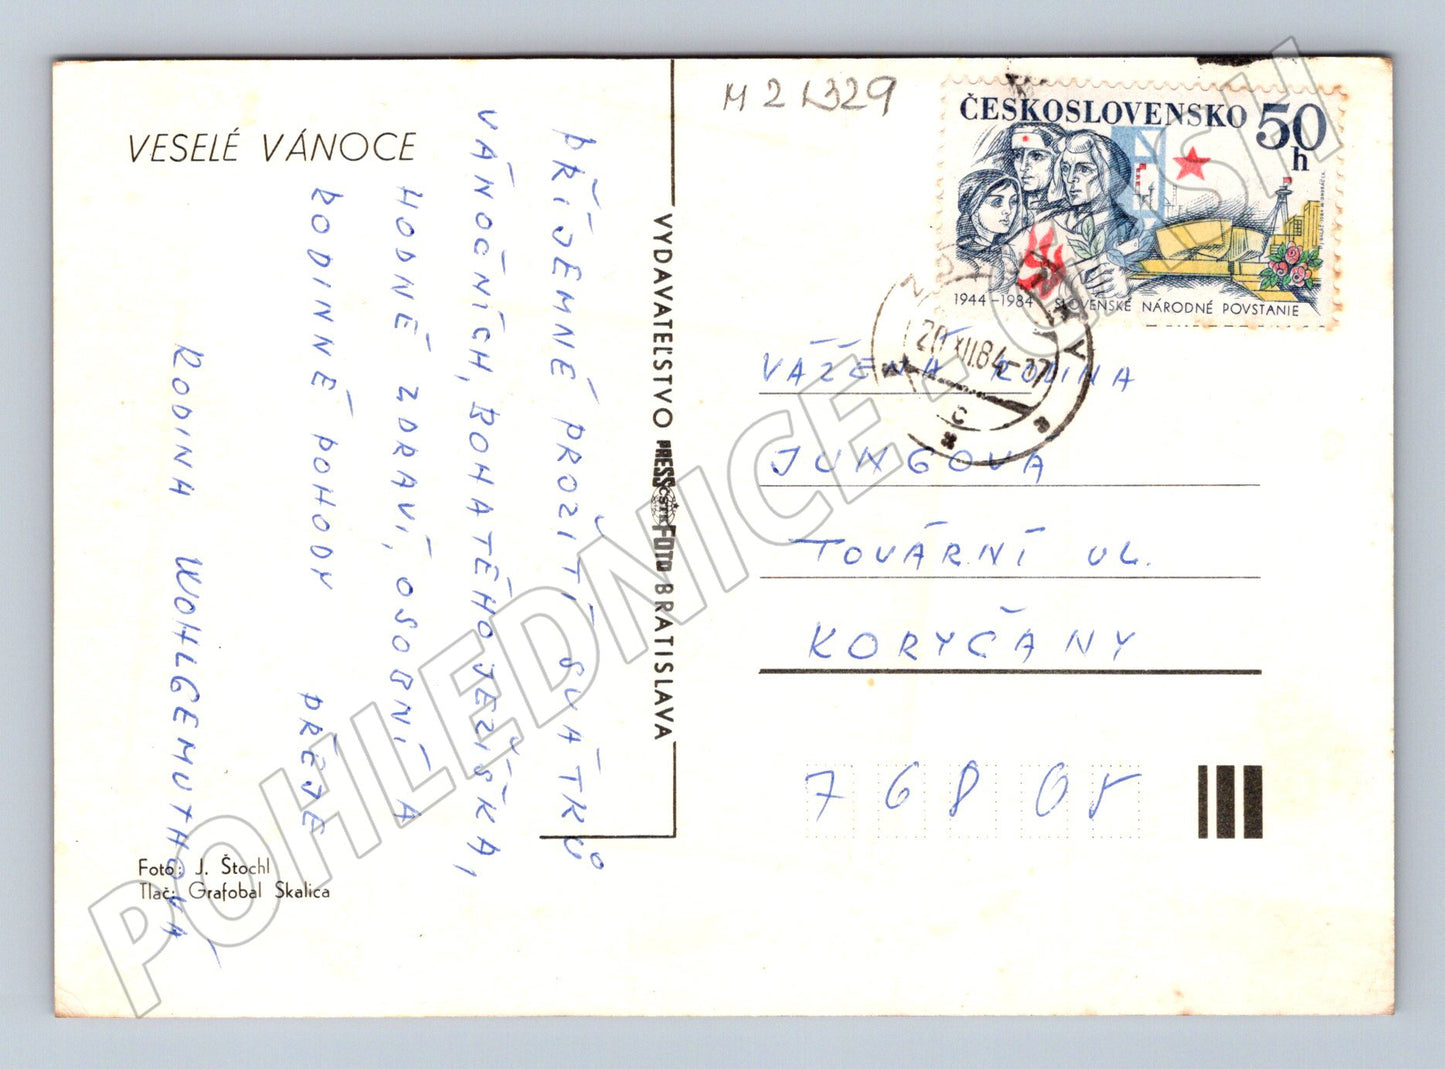 VESELÉ VÁNOCE
PŘÍJEMNÉ PROŽITÍ SVÁTKŮ
VÁNOČNÍCH, BOHATÉHO JEŽÍŠKA,
HODNĚ ZDRAVÍ, OSOBNÍ A
RODINNÉ POHODY PŘEJE
RODINA WOHLGEMUTHOVÁ
Foto: J. Štochl
Tlač: Grafobal Skalica
VYDAVATEĽSTVO PRESS FOTO BRATISLAVA
ČSTK
M 21329
ČESKOSLOVENSKO 50 h
1944–1984 SLOVENSKÉ NÁRODNÉ POVSTANIE
20.XII.84-17
VÁŽENÁ RODINA
JUNGOVA
TOVÁRNÍ UL.
KORYČANY
768 05
POHLEDNICE - CASH